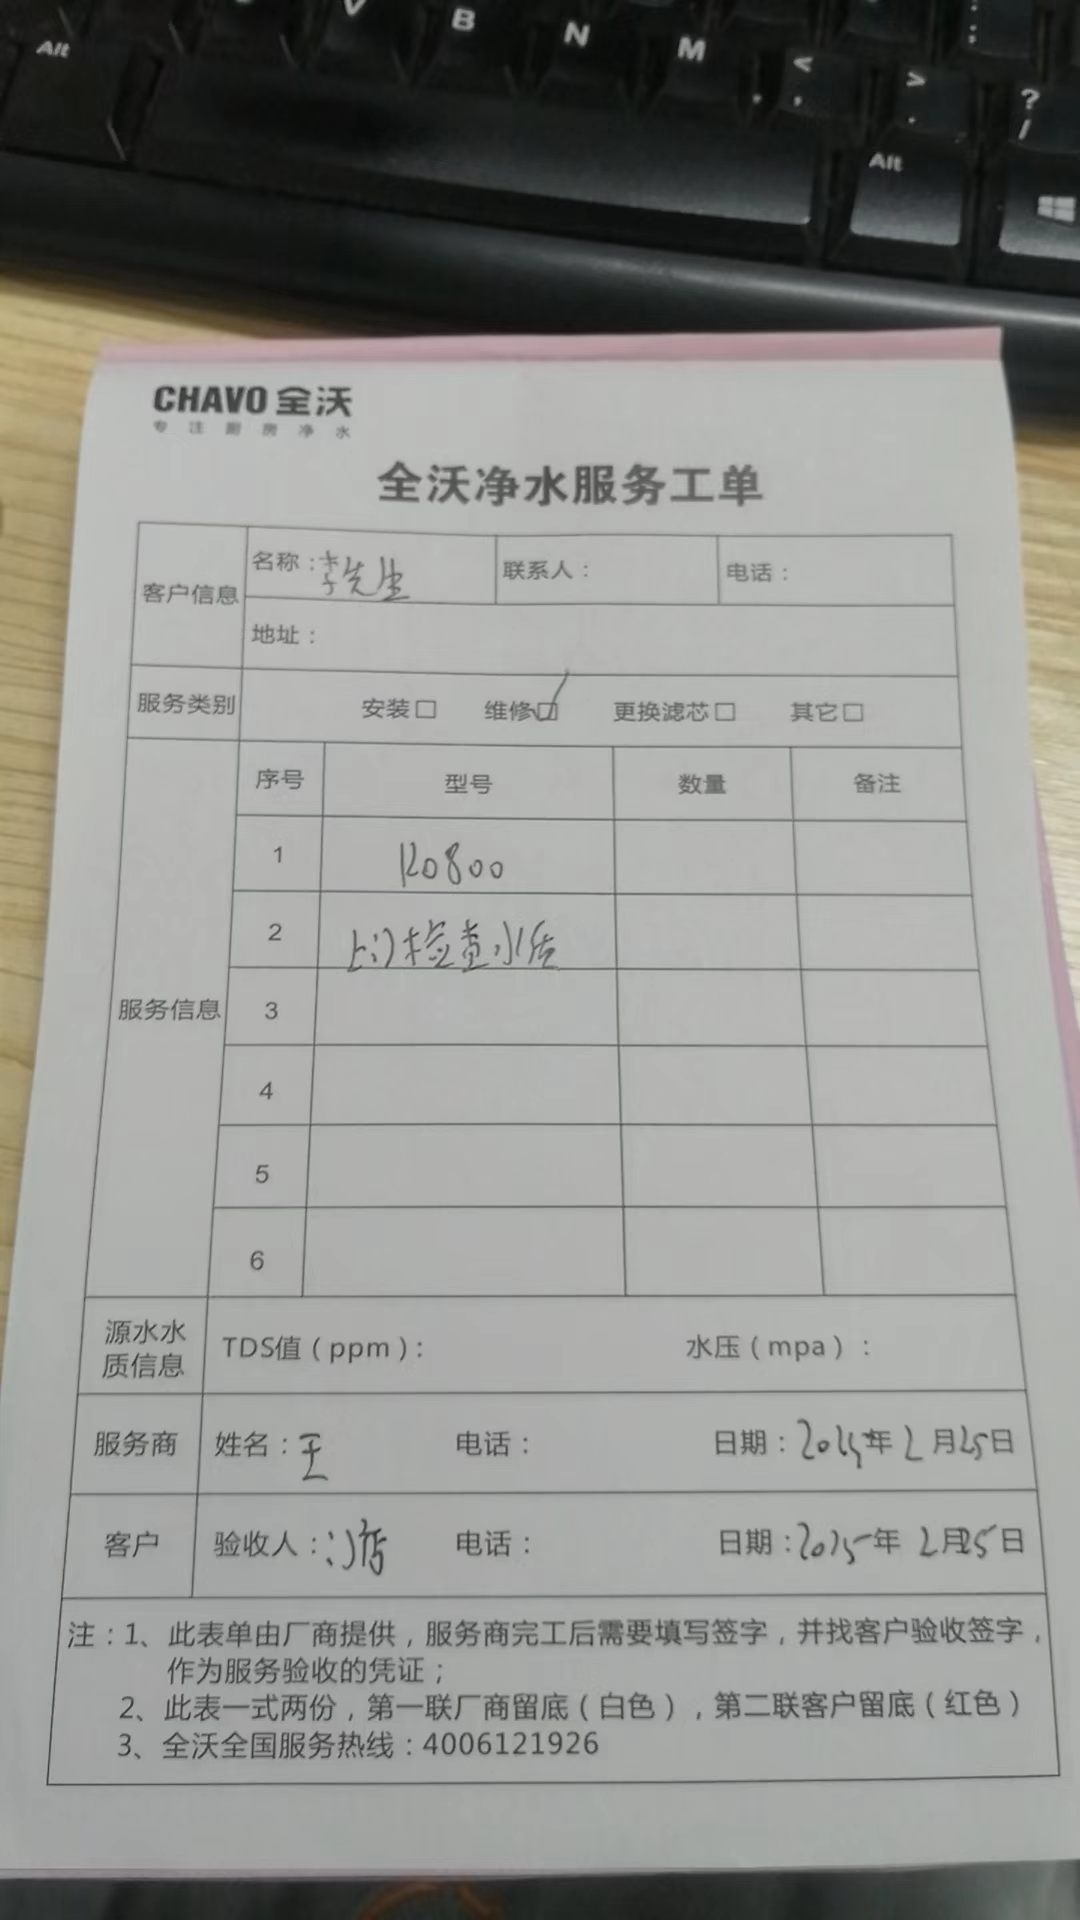 V B N M < , > . ? /
Alt
Alt
CHAVO 全沃
专注厨房净水
全沃净水服务工单
客户信息 名称：李先生 联系人： 电话：
地址：
服务类别 安装□ 维修☑ 更换滤芯□ 其它□
服务信息 序号 型号 数量 备注
1 RO800
2 上门检查水质
3
4
5
6
源水水质信息 TDS值（ppm）： 水压（mpa）：
服务商 姓名：王 电话： 日期：2025年2月25日
客户 验收人：门店 电话： 日期：2025年2月25日
注：1、此表单由厂商提供，服务商完工后需要填写签字，并找客户验收签字，
作为服务验收的凭证；
2、此表一式两份，第一联厂商留底（白色），第二联客户留底（红色）
3、全沃全国服务热线：4006121926